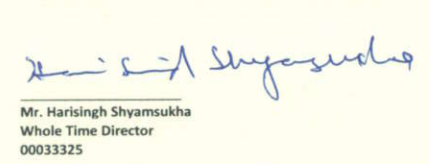 Hari Singh Shyamsukha
Mr. Harisingh Shyamsukha
Whole Time Director
00033325